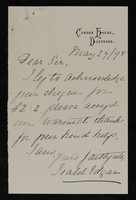 Camden House,
May 27/98
Dear Sir,
I beg to acknowledge
your cheque for
£2-2 please accept
our warmest thanks
for your kind help.
I am,
yours faithfully,